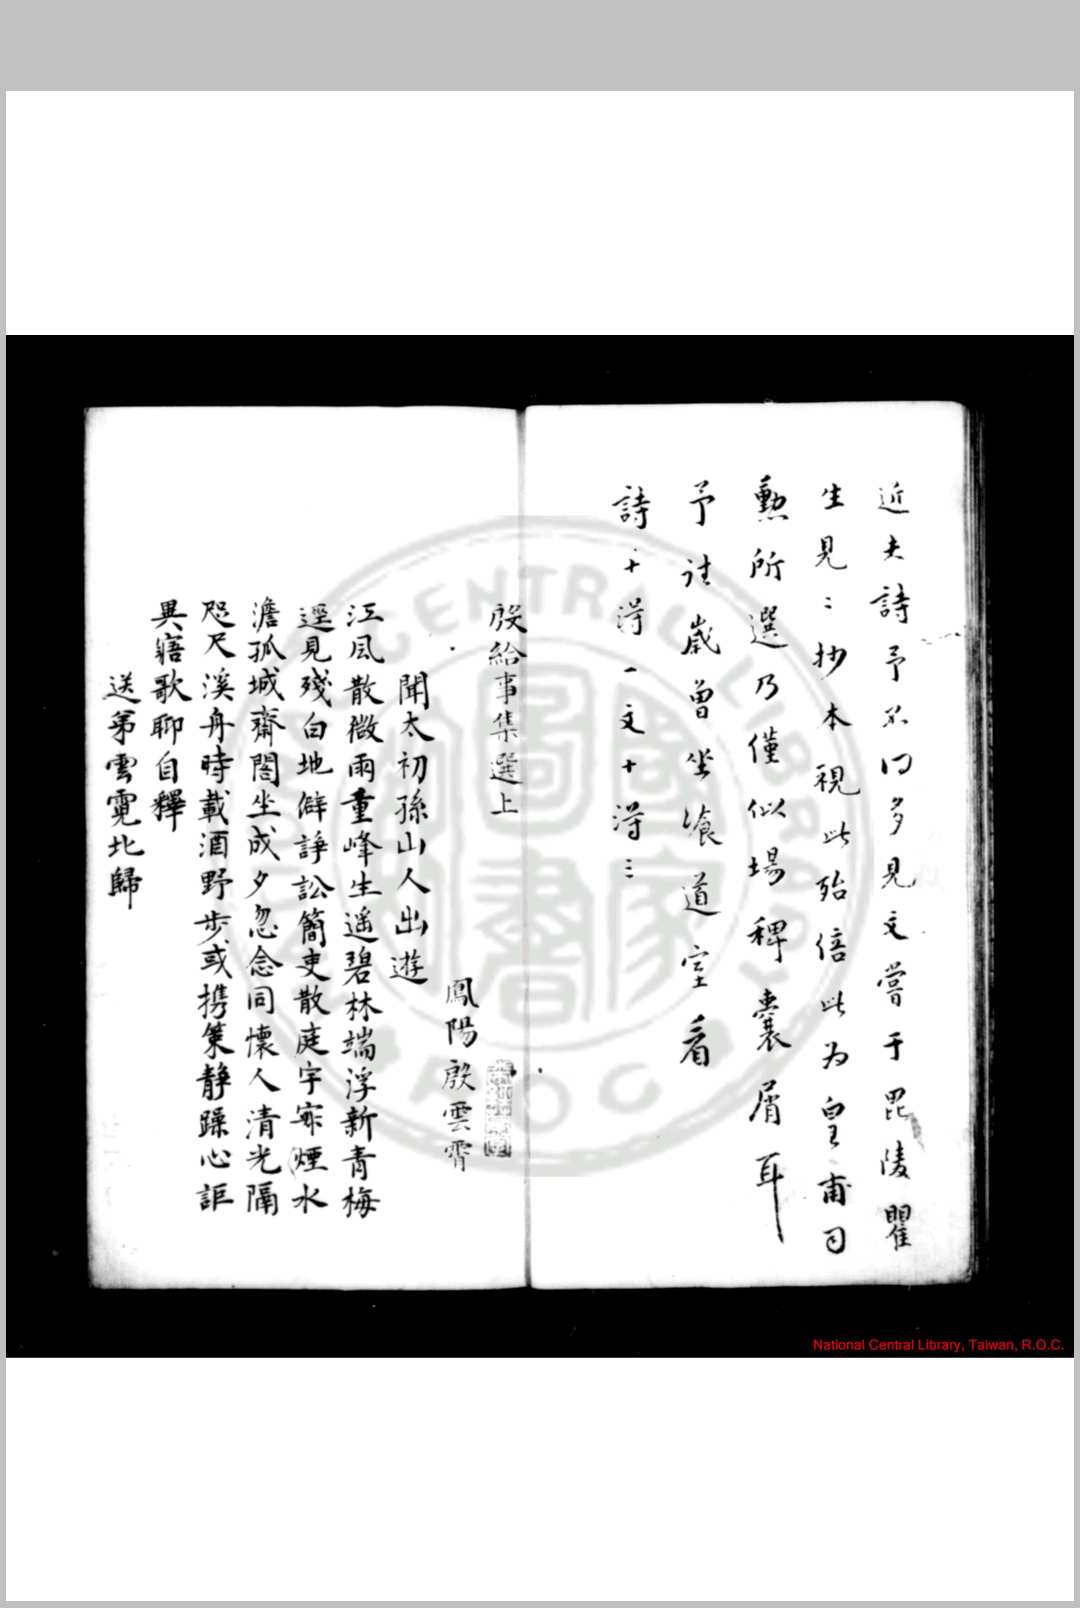 近夫詩予不曰多見文嘗于毘陵瞿
生見〻抄本視此殆倍此为皇甫司
勲所選乃僅似場稗囊屑耳
予往嵗曾坐飡道室看
詩十得一文十得三
殷給事集選上
鳳陽殷雲霄
聞太初孫山人出遊
江風散微雨重峰生遥碧林端浮新青梅
逕見殘白地僻諍訟簡吏散庭宇寂煙水
澹孤城齋閤坐成夕忽念同懷人清光隔
咫尺溪舟時載酒野步或携策静躁心詎
異寤歌聊自釋
送弟雲霓北歸
National Central Library, Taiwan, R.O.C.
NATIONAL CENTRAL LIBRARY
R.O.C.
國家圖書館